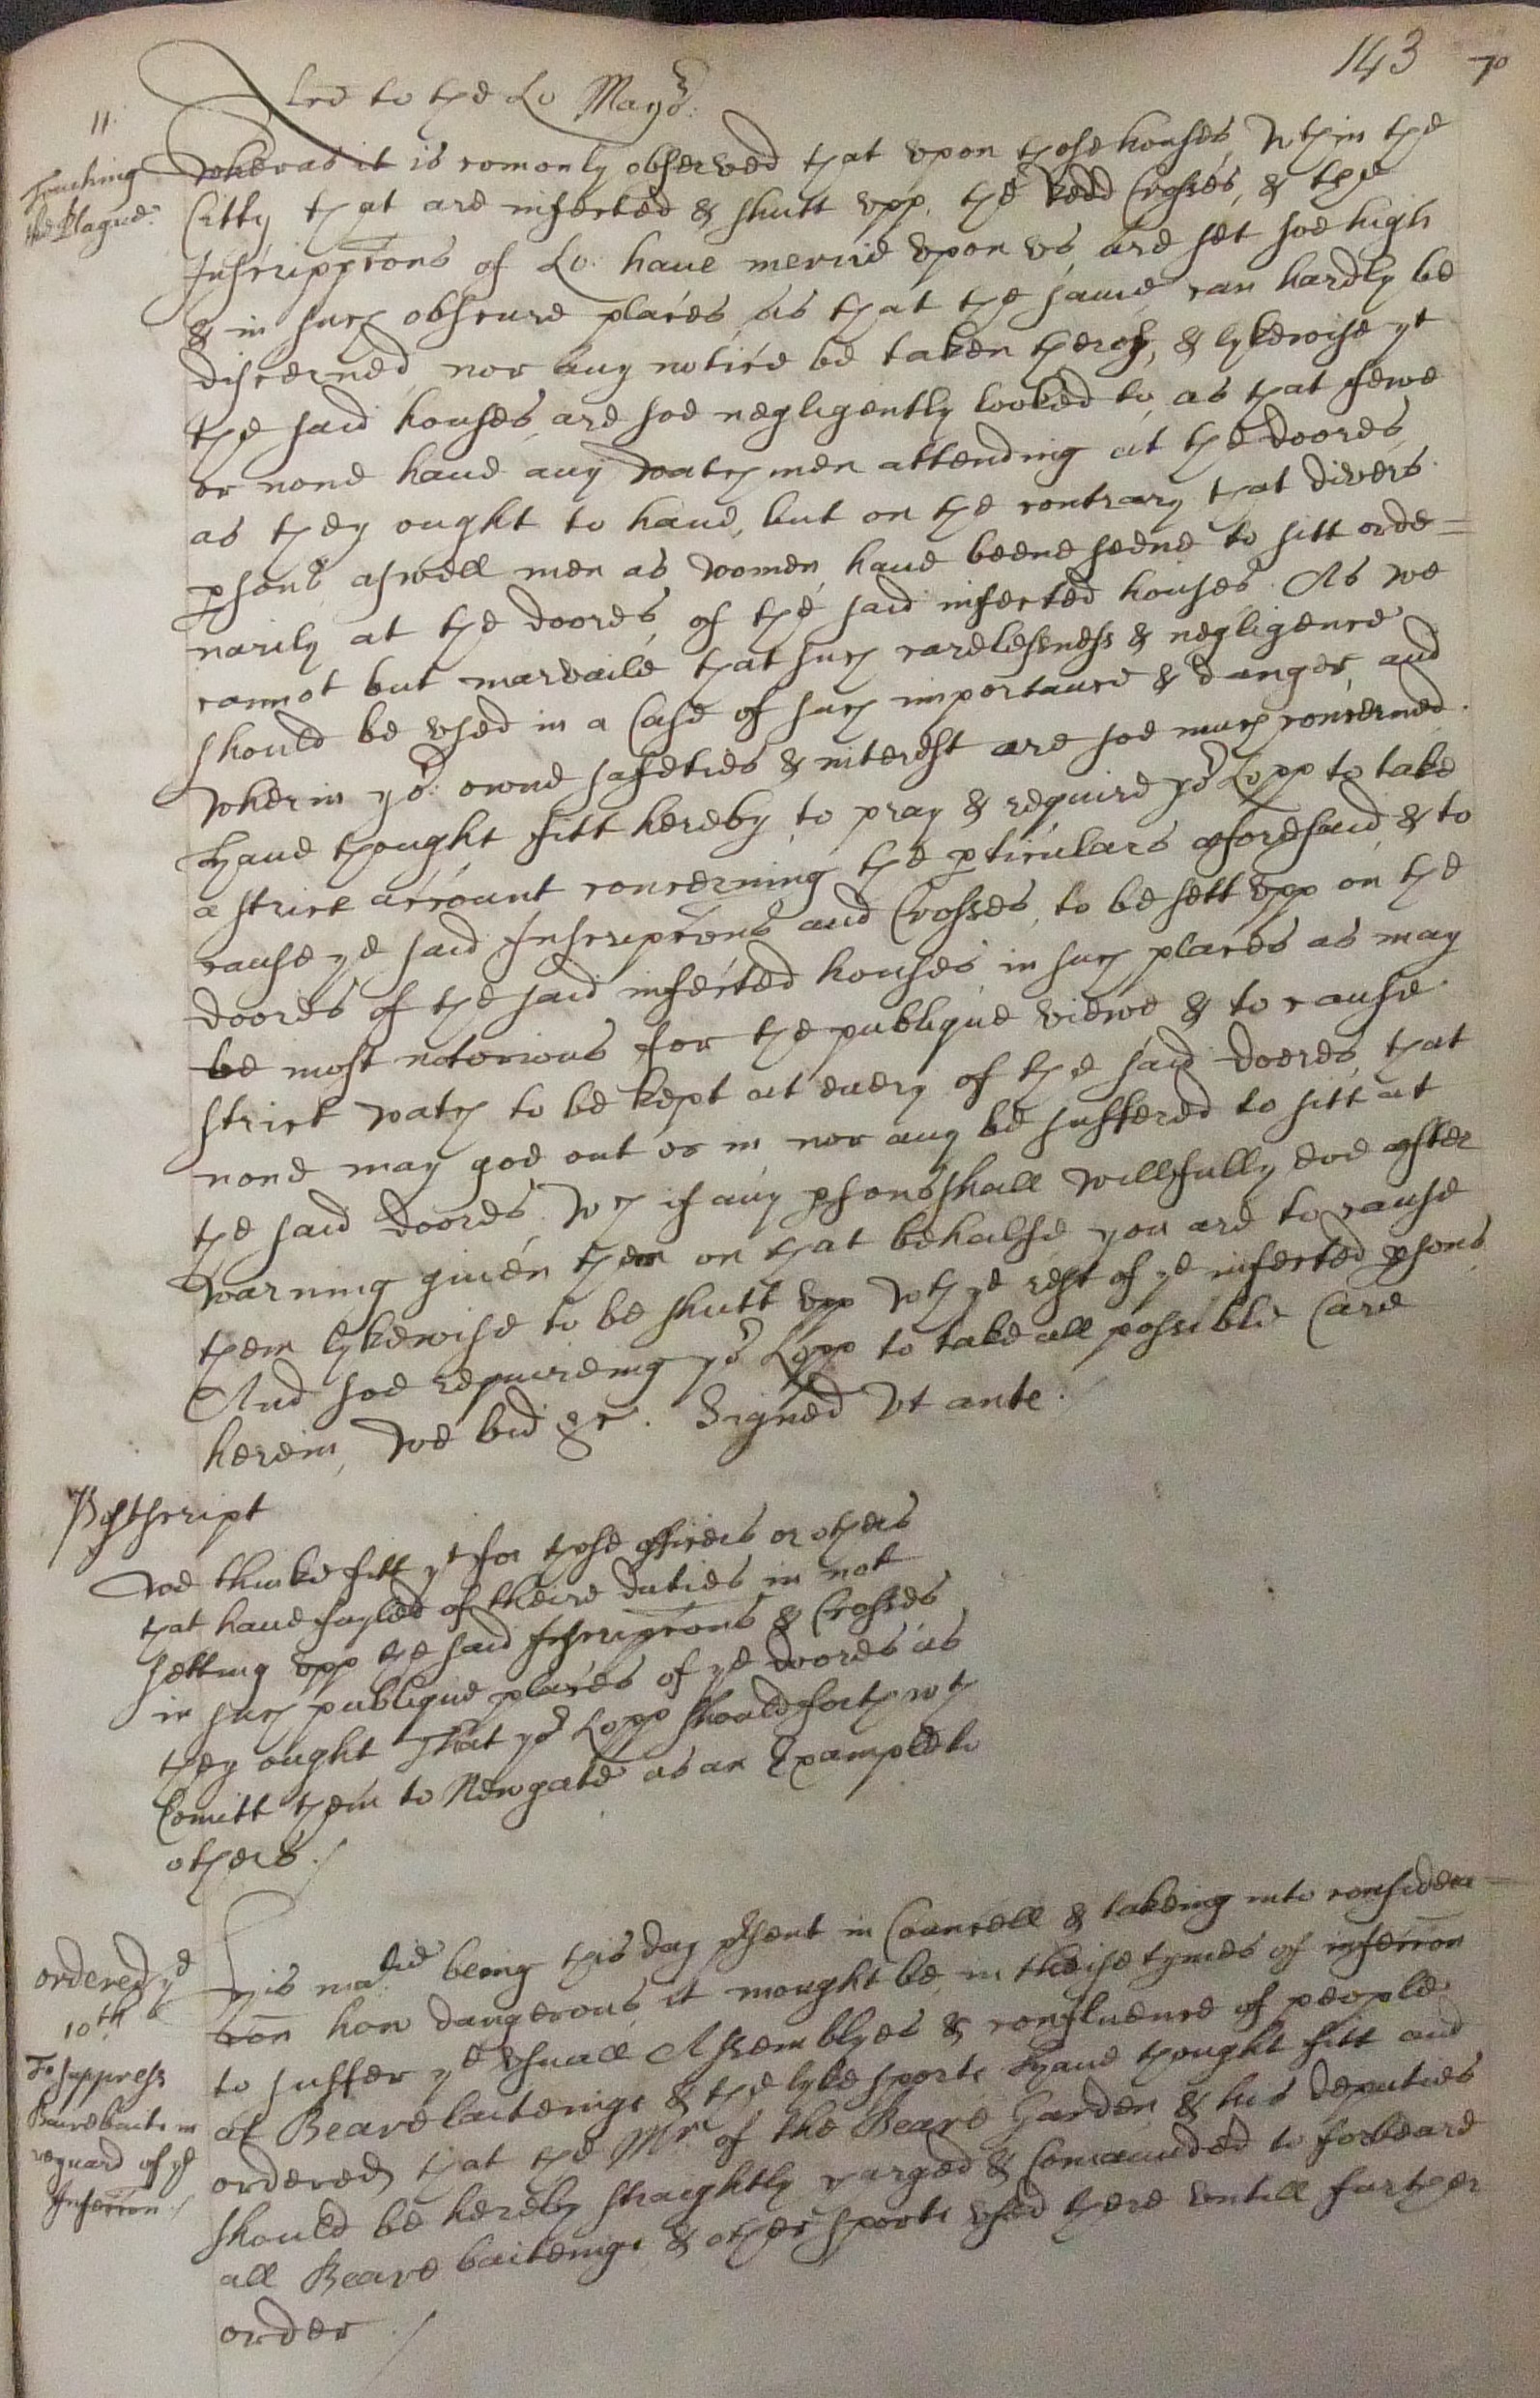 143 70
A Lre to the Lo Mayor:
11.
Touching
the Plague.
Wheras it is comonly observed that vpon those houses wthin the
Citty that are infected & shutt vpp, the Redd Crosses, & the
Inscripptions of Lo: haue mercie vpon vs, are set soe high
& in such obscure places, as that the same can hardly be
discerned, nor any notice be taken therof, & lykewise yt
the said houses, are soe negligently looked to, as that fewe
or none haue any watchmen attending at the doores,
as they ought to haue, but on the contrary that divers
psons aswell men as women, haue beene seene to sitt orde=
narily at the doores, of the said infected houses. As we
cannot but marvaile that such carelessness & negligence
should be vsed in a Case of such importance & danger, and
wherin yor: owne safeties & interest are soe much concerned.
Haue thought fitt hereby to pray & require yor Lopp to take
a strict account concerning the pticulars aforesaid, & to
cause ye said Inscriptions and Crosses, to be sett vpp on the
doores of the said infected houses, in such places as may
be most notorious for the publique viewe & to cause
strict watch to be kept at every of the said doores, that
none may goe out or in nor any be suffered to sitt at
the said doores, wch if any psons shall willfully doe after
warning given them on that behalfe you are to cause
them lykewise to be shutt vpp wth ye rest of ye infected psons,
And soe requireing yor Lopp to take all possible Care
herein, we bid &c. Signed Vt ante.
Postscript
We thinke fitt yt for those officers or others
that haue fayled of theire duties in not
setting vpp the said Inscriptions & Crosses
in such publique places of ye doores as
they ought That yor Lopp should forthwth
Comitt them to Newgate as an Example to
others./
ordered ye
10th
To suppress
Bearebaits in
reguard of ye
Infection./
His matie being this day psent in Councell & takeing into considera=
tion how dangerous it mought be, in theise tymes of infection
to suffer ye vsuall Assemblyes & confluence of people
at Bearebaitings & the lyke sports Haue thought fitt and
ordered, that the Mr of the Beare Garden & his deputies
should be hereby straightly charged & Comaunded to forbeare
all Bearebaitings & other sports vsed there vntill further
order./